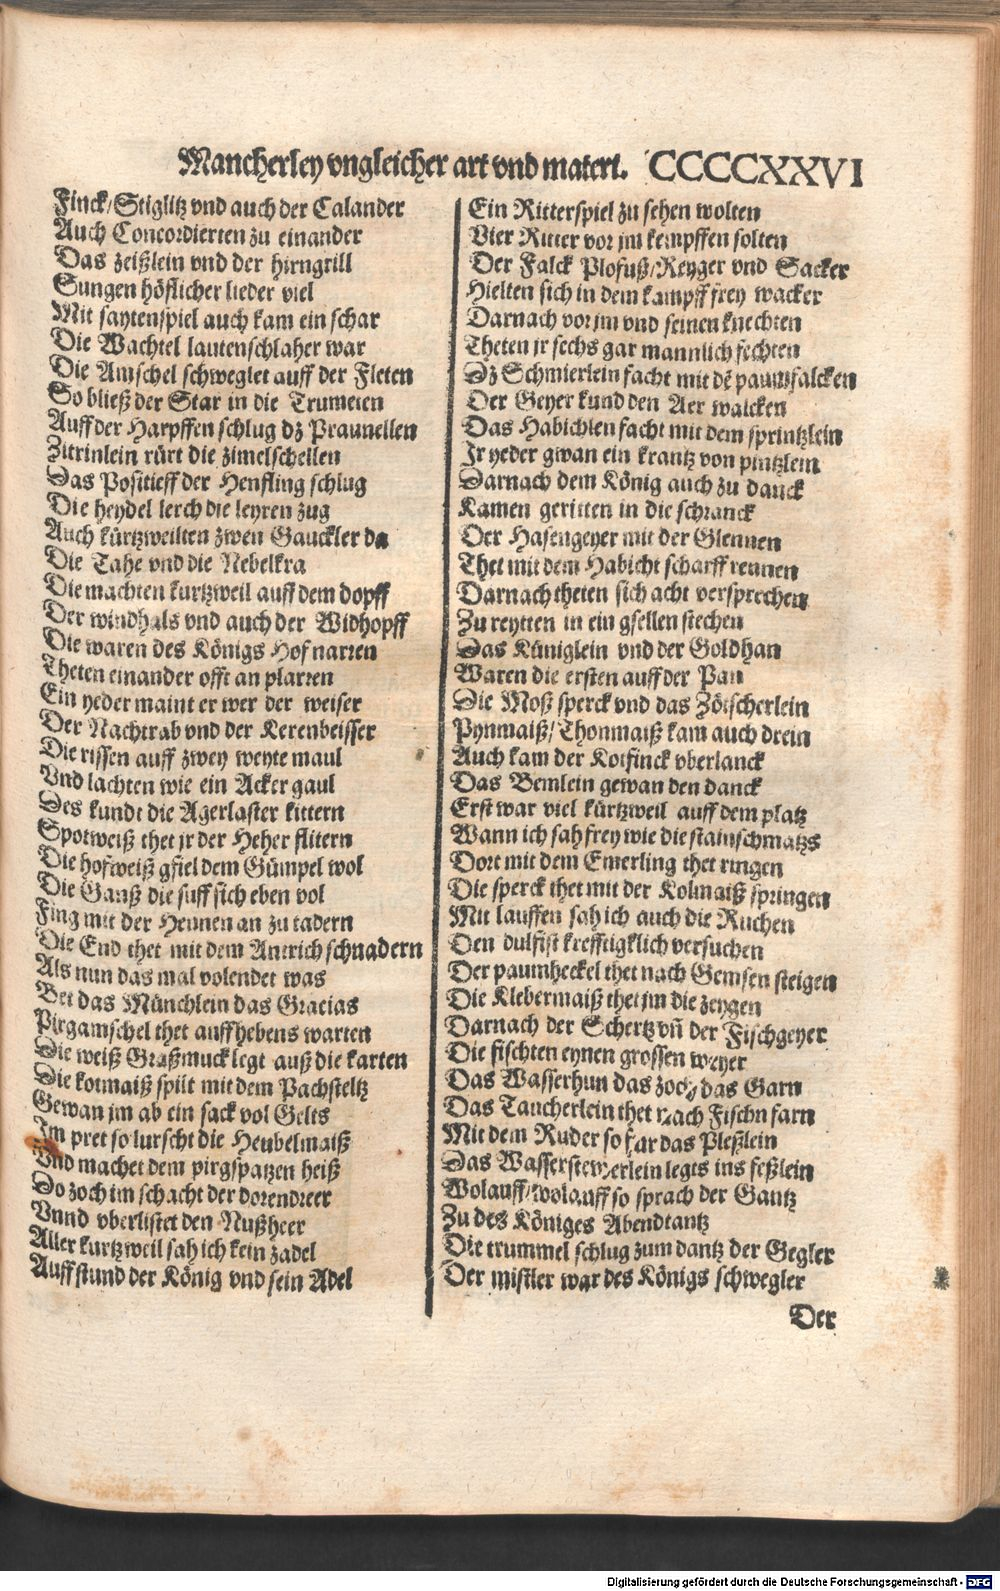 Mancherley vngleicher art vnd materi. CCCCCXXVI
Finck/Stiglitz vnd auch der Calander
Auch Concordierten zu einander
Das zeißlein vnd der hirngrill
Sungen höflicher lieder viel
Mit saytenspiel auch kam ein schar
Die Wachtel lautenschlaher war
Die Amschel schweglet auff der Fleten
So bließ der Star in die Trumeten
Auff der Harpffen schlug dz Praunellen
Zitrinlein rürt die zimelschellen
Das Positieff der Henfling schlug
Die heydel lerch die leyren zug
Auch kürtzweilten zwen Gauckler da
Die Tahe vnd die Nebelkra
Die machten kurtzweil auff dem dopff
Der windhals vnd auch der Widhopff
Die waren des Königs Hof narren
Theten einander offt an plarren
Ein yeder maint er wer der weiser
Der Nachtrab vnd der Kerenbeisser
Die rissen auff zwey weyte maul
Vnd lachten wie ein Acker gaul
Des kundt die Agerlaster kittern
Spotweiß thet jr der Heher flitern
Die hofweiß gfiel dem Gümpel wol
Die Ganß die suff sich eben vol
Fing mit der Hennen an zu tadern
Die End thet mit dem Antrich schnadern
Als nun das mal volendet was
Bet das Münchlein das Gracias
Pirgamschel thet auffhebens warten
Die weiß Graßmuck legt auß die karten
Die kotmaiß spilt mit dem Pachsteltz
Gewan jm ab ein sack vol Gelts
Im pret so lurscht die Heubelmaiß
Vnd machet dem pirgspatzen heiß
Do zoch im schacht der dorendreer
Vnnd vberlistet den Nußheer
Aller kurtzweil sah ich kein zadel
Auff stund der König vnd sein Adel
Ein Ritterspiel zu sehen wolten
Vier Ritter vor jm kempffen solten
Der Falck Plofuß/Reyger vnd Sacker
Hielten sich in dem kampff frey wacker
Darnach vor jm vnd seinen knechten
Theten jr sechs gar mannlich fechten
Dz Schmierlein facht mit dē paumfalcken
Der Geyer kund den Aer walcken
Das Habichlen facht mit dem sprintzlein
Jr yeder gwan ein krantz von pintzlein
Darnach dem König auch zu danck
Kamen geritten in die schranck
Der Hasengeyer mit der Glennen
Thet mit dem Habicht scharff rennen
Darnach theten sich acht versprechen
Zu reytten in ein gsellen stechen
Das Küniglein vnd der Goldhan
Waren die ersten auff der Pan
Die Moß sperck vnd das Zötscherlein
Pynmaiß/Thonmaiß kam auch drein
Auch kam der Kotfinck vberlanck
Das Bemlein gewan den danck
Erst war viel kürtzweil auff dem platz
Wann ich sah frey wie die stainschmatzs
Dort mit dem Emerling thet ringen
Die sperck thet mit der Kolmaiß springen
Mit lauffen sah ich auch die Ruchen
Den dulfist krefftigklich versuchen
Der paumheckel thet nach Gemsen steigen
Die Klebermaiß thet jm die zeygen
Darnach der Schertz vñ der Fischgeyer
Die fischten eynen grossen weyer
Das Wasserhun das zoch das Garn
Das Taucherlein thet nach Fischn farn
Mit dem Ruder so fur das Pleßlein
Das Wasserstewerlein legts ins feßlein
Wolauff/wolauff so sprach der Gantz
Zu des Königes Abendtantz
Die trummel schlug zum dantz der Gegler
Der mistler war des Königs schwegler
Der
Digitalisierung gefördert durch die Deutsche Forschungsgemeinschaft - DFG